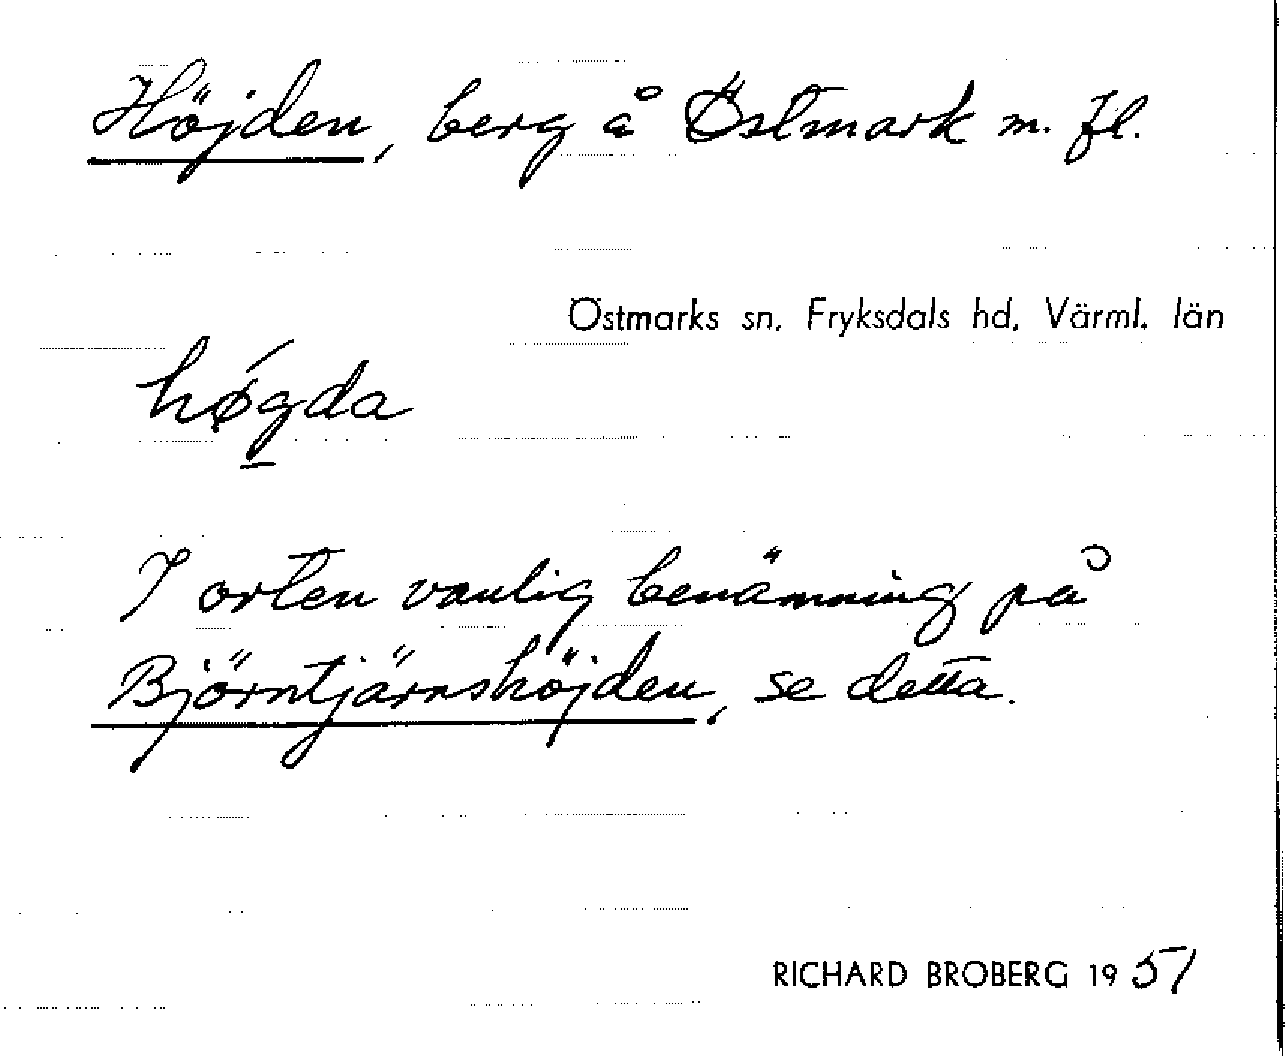 Höjden, berg å Östmark m. fl.
Östmarks sn, Fryksdals hd, Värml. län
hǿgda
I orten vanlig benämning på
Björntjärnshöjden, se detta.
RICHARD BROBERG 1951